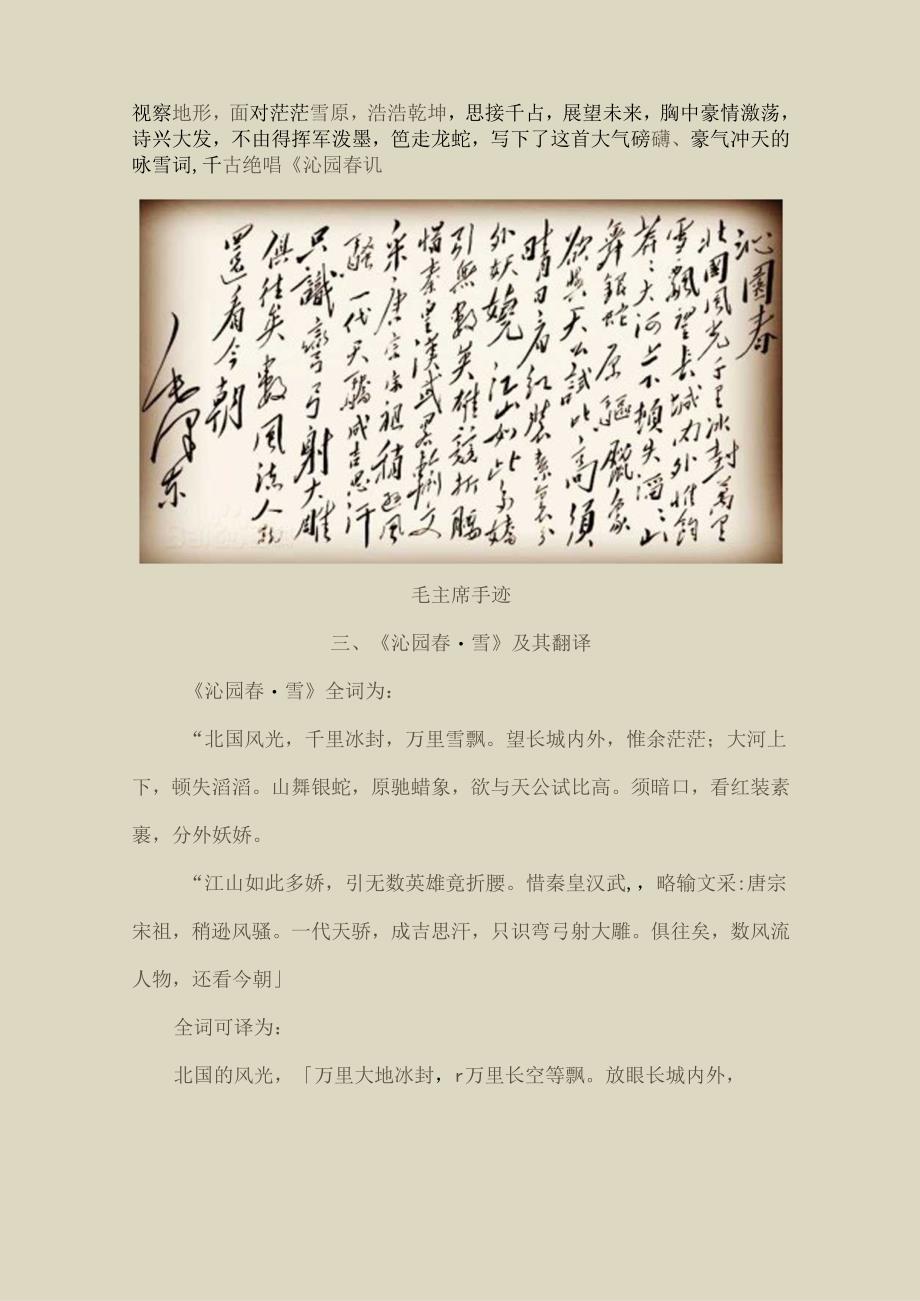 视察地形，面对茫茫雪原，浩浩乾坤，思接千占，展望未来，胸中豪情激荡，
诗兴大发，不由得挥军泼墨，笆走龙蛇，写下了这首大气磅礴、豪气冲天的
咏雪词,千古绝唱《沁园春讥
沁園春
北國風光千里冰封萬里
雪飄望長城内外惟餘
莽〻大河上下頓失滔〻山
舞銀蛇原驅臘象
欲與天公試比高須
晴日看紅裝素裹分
外妖嬈江山如此多嬌
引無數英雄競折腰
惜秦皇漢武略輸文
采唐宗宋祖稍遜風
騷一代天驕成吉思汗
只識彎弓射大雕
俱往矣數風流人物
還看今朝
毛澤东
毛主席手迹
三、《沁园春·雪》及其翻译
《沁园春·雪》全词为：
“北国风光，千里冰封，万里雪飘。望长城内外，惟余茫茫；大河上
下，顿失滔滔。山舞银蛇，原驰蜡象，欲与天公试比高。须暗口，看红装素
裹，分外妖娇。
“江山如此多娇，引无数英雄竟折腰。惜秦皇汉武,，略输文采:唐宗
宋祖，稍逊风骚。一代天骄，成吉思汗，只识弯弓射大雕。俱往矣，数风流
人物，还看今朝」
全词可译为：
北国的风光，「万里大地冰封，r万里长空等飘。放眼长城内外，